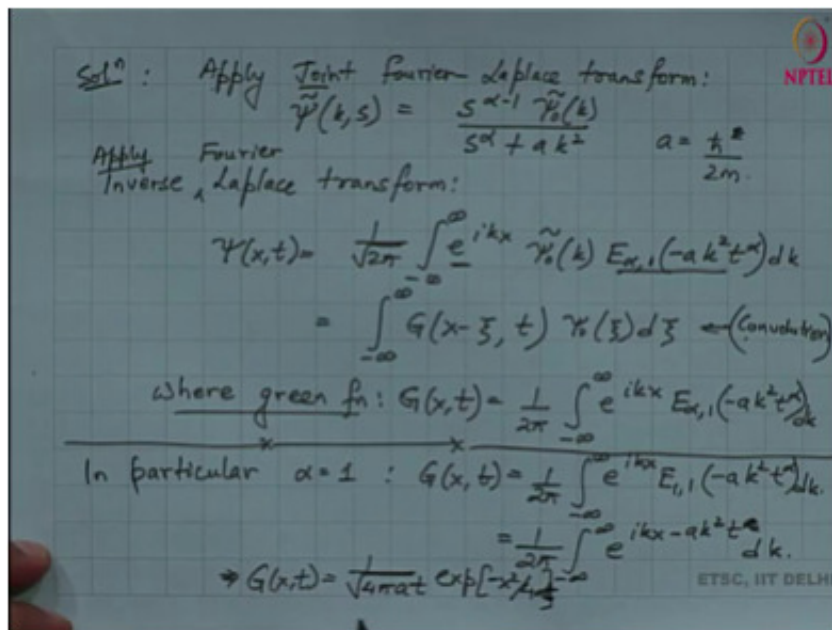 Solⁿ : Apply Joint Fourier-Laplace transform:
NPTEL
ψ̃(k,s) = s^{α-1} ψ̃₀(k) / (s^α + ak²)    a = ħ² / 2m.
Apply Fourier
Inverse ∧ Laplace transform:
ψ(x,t) = 1/√2π ∫_{-∞}^{∞} e^{ikx} ψ̃₀(k) E_{α,1}(-ak²t^α)dk
= ∫_{-∞}^{∞} G(x-ξ, t) ψ₀(ξ)dξ ←(Convolution)
where green fn: G(x,t) = 1/2π ∫_{-∞}^{∞} e^{ikx} E_{α,1}(-ak²t^α)dk
In particular α=1 : G(x,t) = 1/2π ∫_{-∞}^{∞} e^{ikx} E_{1,1}(-ak²t^α)dk.
= 1/2π ∫_{-∞}^{∞} e^{ikx-ak²t} dk.
⇒ G(x,t) = 1/√4πat exp[-x²/
ETSC, IIT DELHI